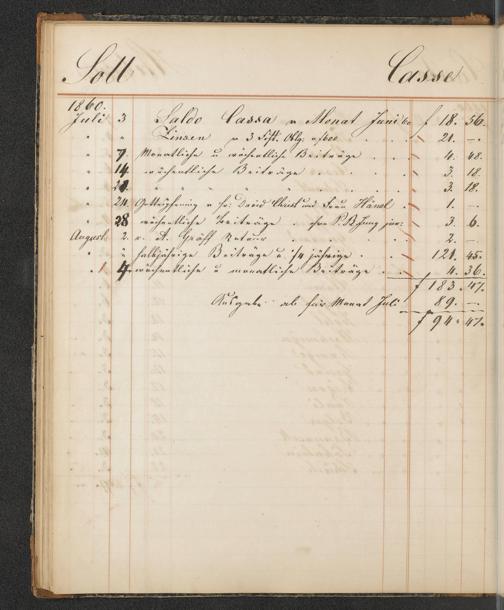 Soll Casse
1860.
Juli 3 Saldo Cassa v Monat Juni 60 f 18. 56.
" " Zinsen v 3 Oblg. 21. —.
" 7 Monatliche u wöchentliche Beiträge 4. 48.
" 14 wöchentliche Beiträge 3. 18.
" 21 " " " 3. 18.
" 24 v Hr. David und Frau Hänel 1. —.
" 28 wöchentliche Beiträge 3. 6.
August 2. v. A. Gräff Retour 2. —
" " halbjährige Beiträge u. 1/4 jährige 121. 45.
" 4 wöchentliche u monatliche Beiträge 4. 36.
f 183. 47.
Ausgabe ab für Monat Juli 89. —.
f 94. 47.